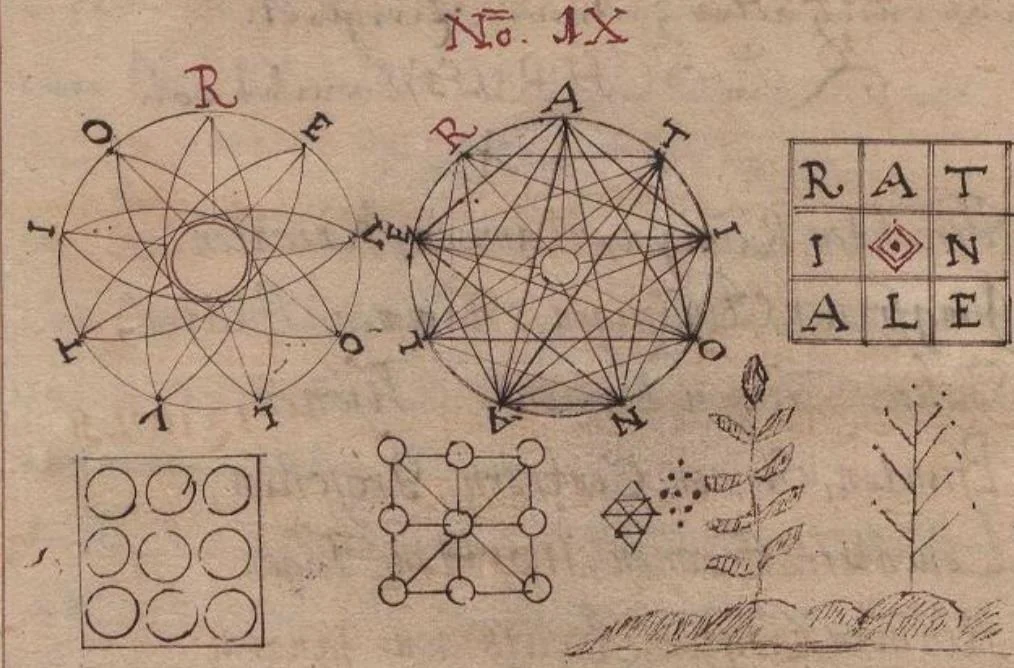 Nō. IX
REVOLVTIO
RATIONALE
R A T
I N
A L E